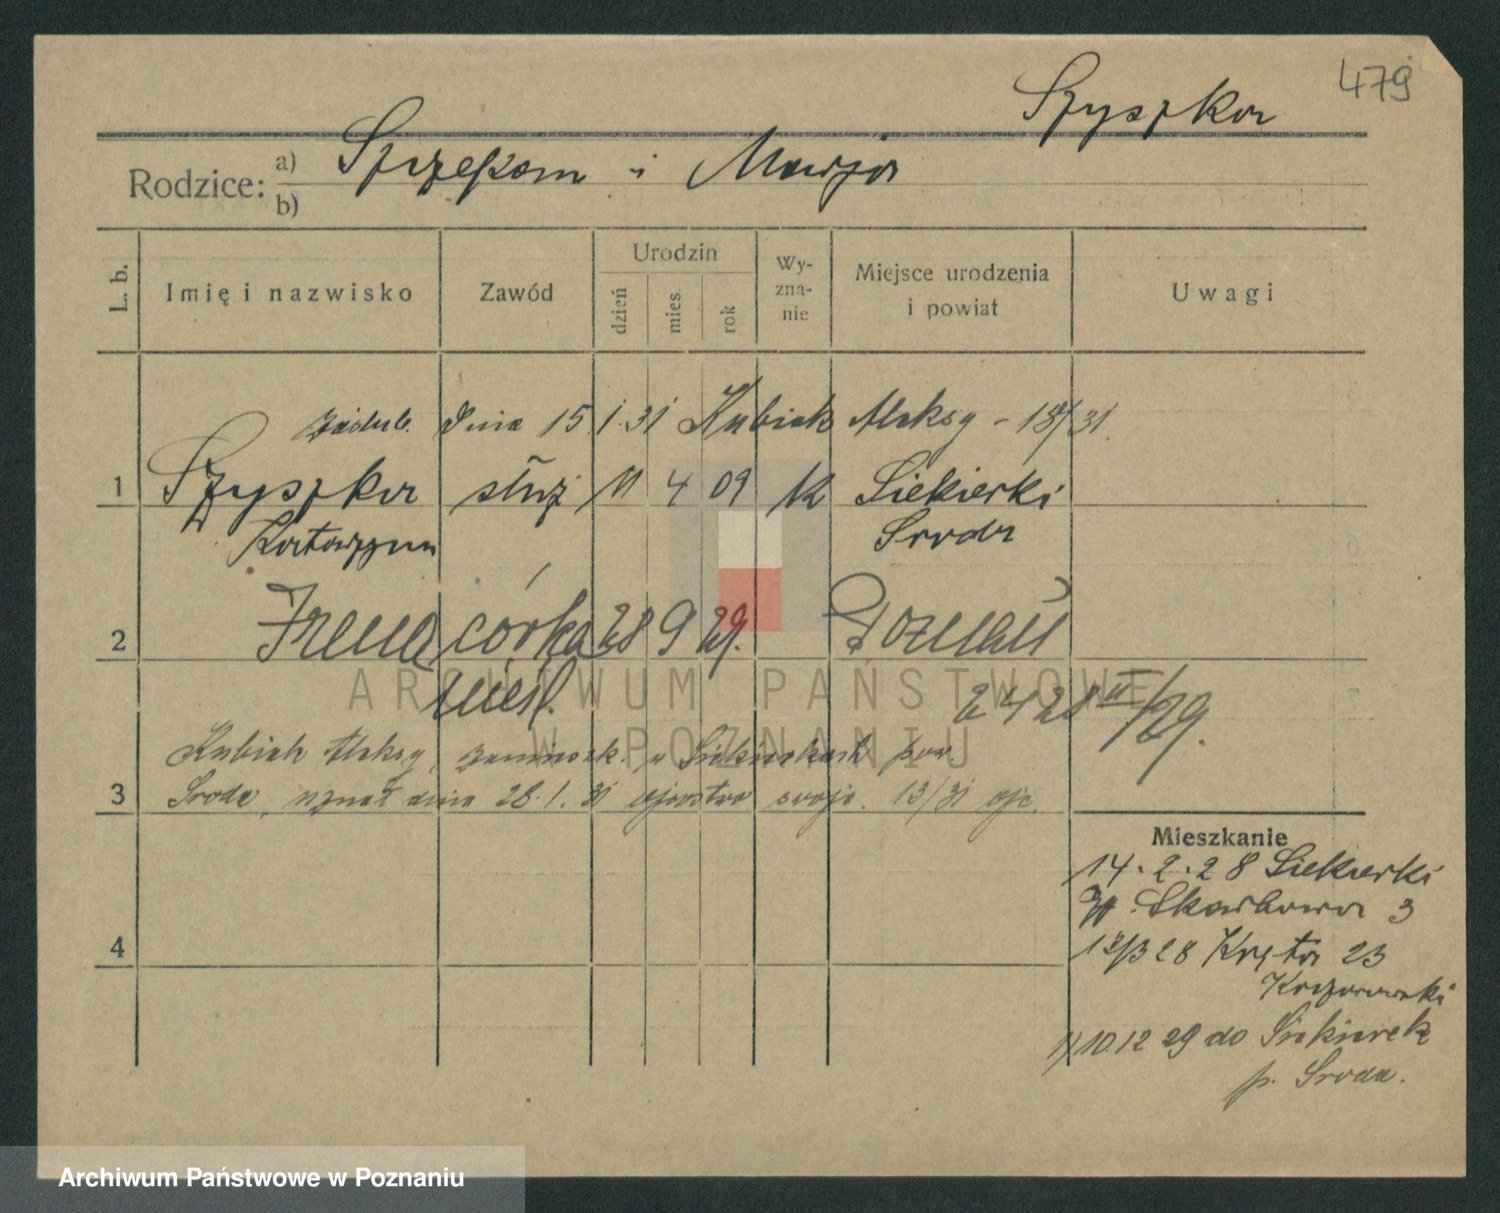 479
Szyszka
Rodzice: a) Szczepan i Marja
b)
L. b.
Imię i nazwisko
Zawód
Urodzin
dzień
mies.
rok
Wy-
zna-
nie
Miejsce urodzenia
i powiat
Uwagi
zaślub. dnia 15.1.31 Kubiak Aleksy - 18/31.
1 Szyszka służ 11 4 09 K Siekierki
Katarzyna Sroda
2 Irena córka 28 9 29. Poznań
nieśl. 2428 /29.
3 Kubiak Aleksy, zamieszk. w Siekierkach pow
Sroda, uznał dnia 28.1.31 ojcostwo swoje. 13/31 ojc.
Mieszkanie
14.2.28 Siekierki
Skarbowa 3
4 13/3 28 Kręta 23
1) 10 12 29 do Siekierek
p. Sroda.
ARCHIWUM PAŃSTWOWE
W POZNANIU
Archiwum Państwowe w Poznaniu